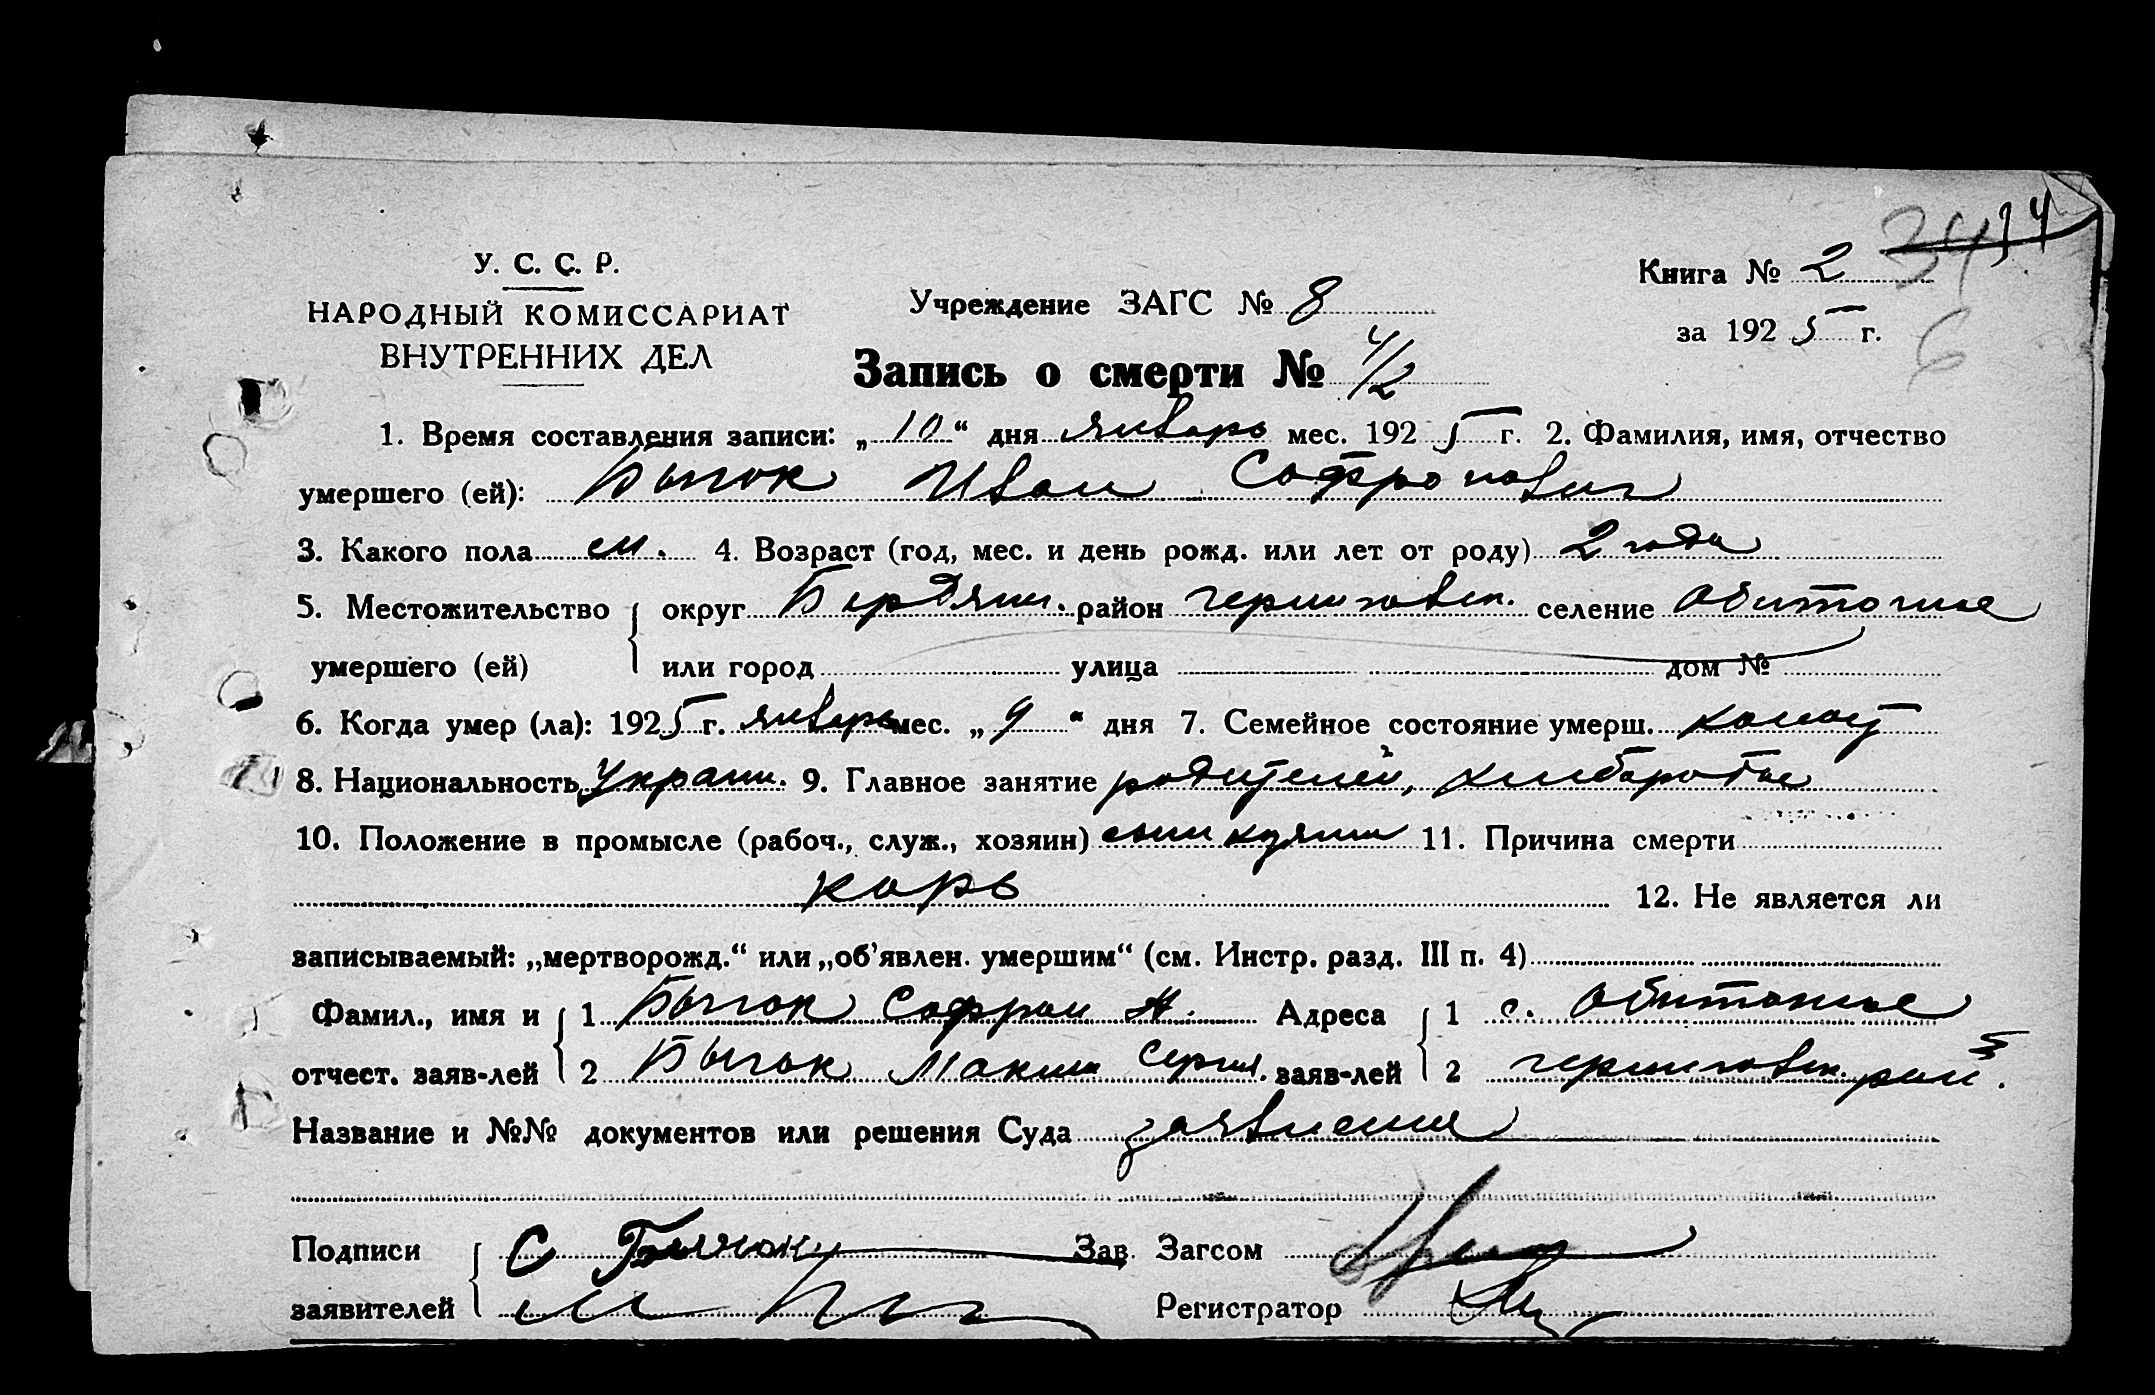 34 14
У. С. С. Р.
НАРОДНЫЙ КОМИССАРИАТ
ВНУТРЕННИХ ДЕЛ
Учреждение ЗАГС № 8
Книга № 2
за 1925 г.
6
Запись о смерти № 4/2
1. Время составления записи: „10“ дня январь мес. 1925 г. 2. Фамилия, имя, отчество
умершего (ей): Бычок Иван Софронович
3. Какого пола м. 4. Возраст (год, мес. и день рожд. или лет от роду) 2 года
5. Местожительство округ Бердянск. район Черниговск. селение Обиточне
умершего (ей) или город улица дом №
6. Когда умер (ла): 1925 г. январь мес. „9“ дня 7. Семейное состояние умерш. холост
8. Национальность Украин. 9. Главное занятие родителей, хлебороб
10. Положение в промысле (рабоч., служ., хозяин) сын 11. Причина смерти
корь 12. Не является ли
записываемый: „мертворожд.“ или „об'явлен. умершим“ (см. Инстр. разд. III п. 4)
Фамил., имя и 1 Бычок Софрон Н. Адреса 1 с. Обиточне
отчест. заяв-лей 2 Бычок Максим Сергия. заяв-лей 2 Черниговск. рай.
Название и №№ документов или решения Суда заявления
Подписи С Бычок Зав. Загсом
заявителей Регистратор